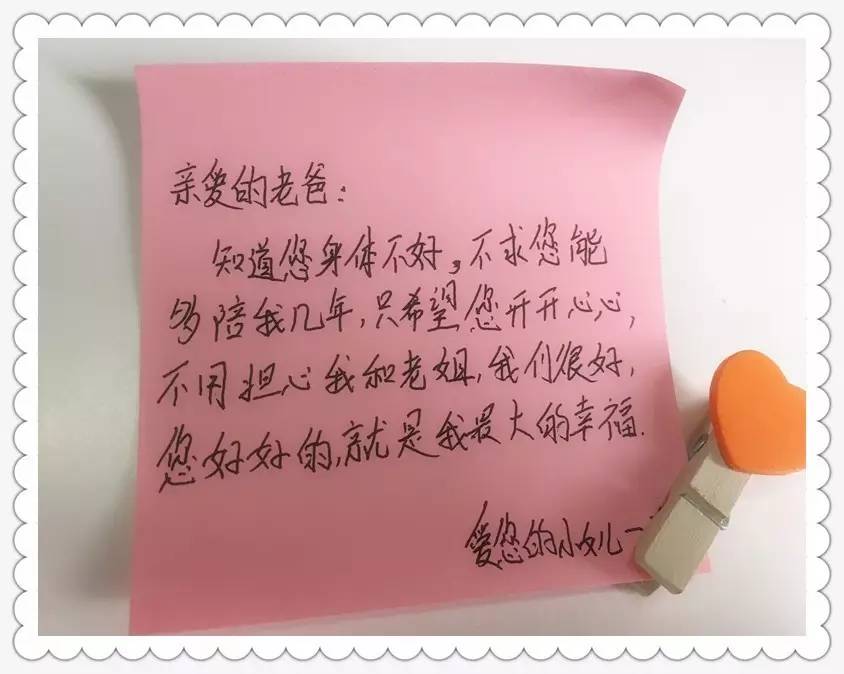 亲爱的老爸：
知道您身体不好，不求您能
多陪我几年，只希望您开开心心，
不用担心我和老姐，我们很好，
您好好的，就是我最大的幸福.
爱您的小女儿一